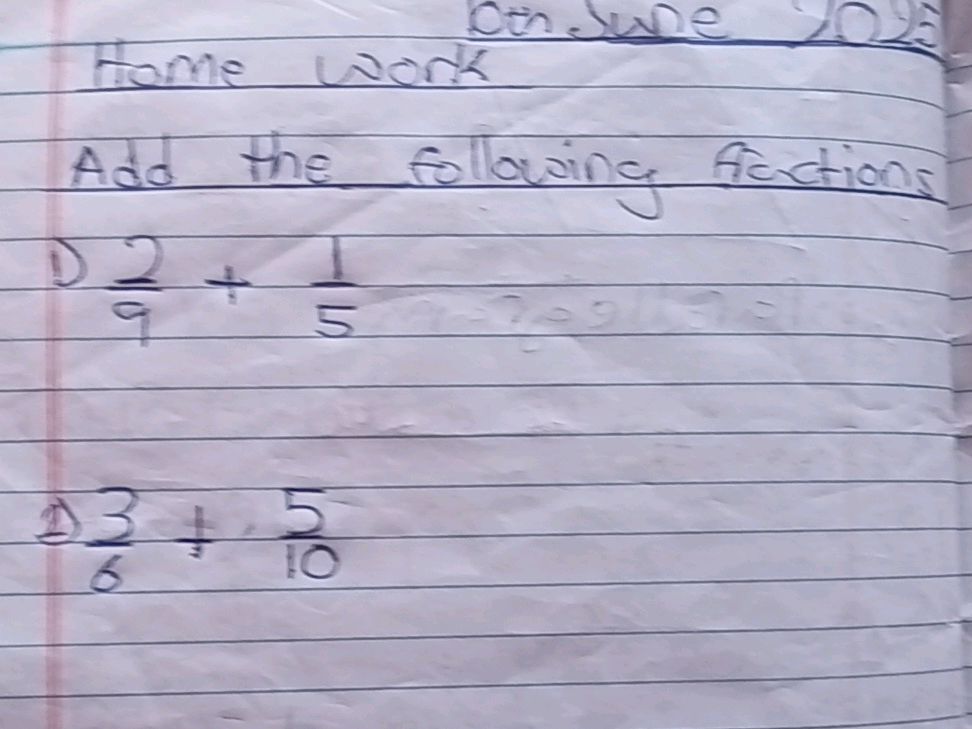 June
Home work
Add the following fractions
1) 2/9 + 1/5
2) 3/6 + 5/10